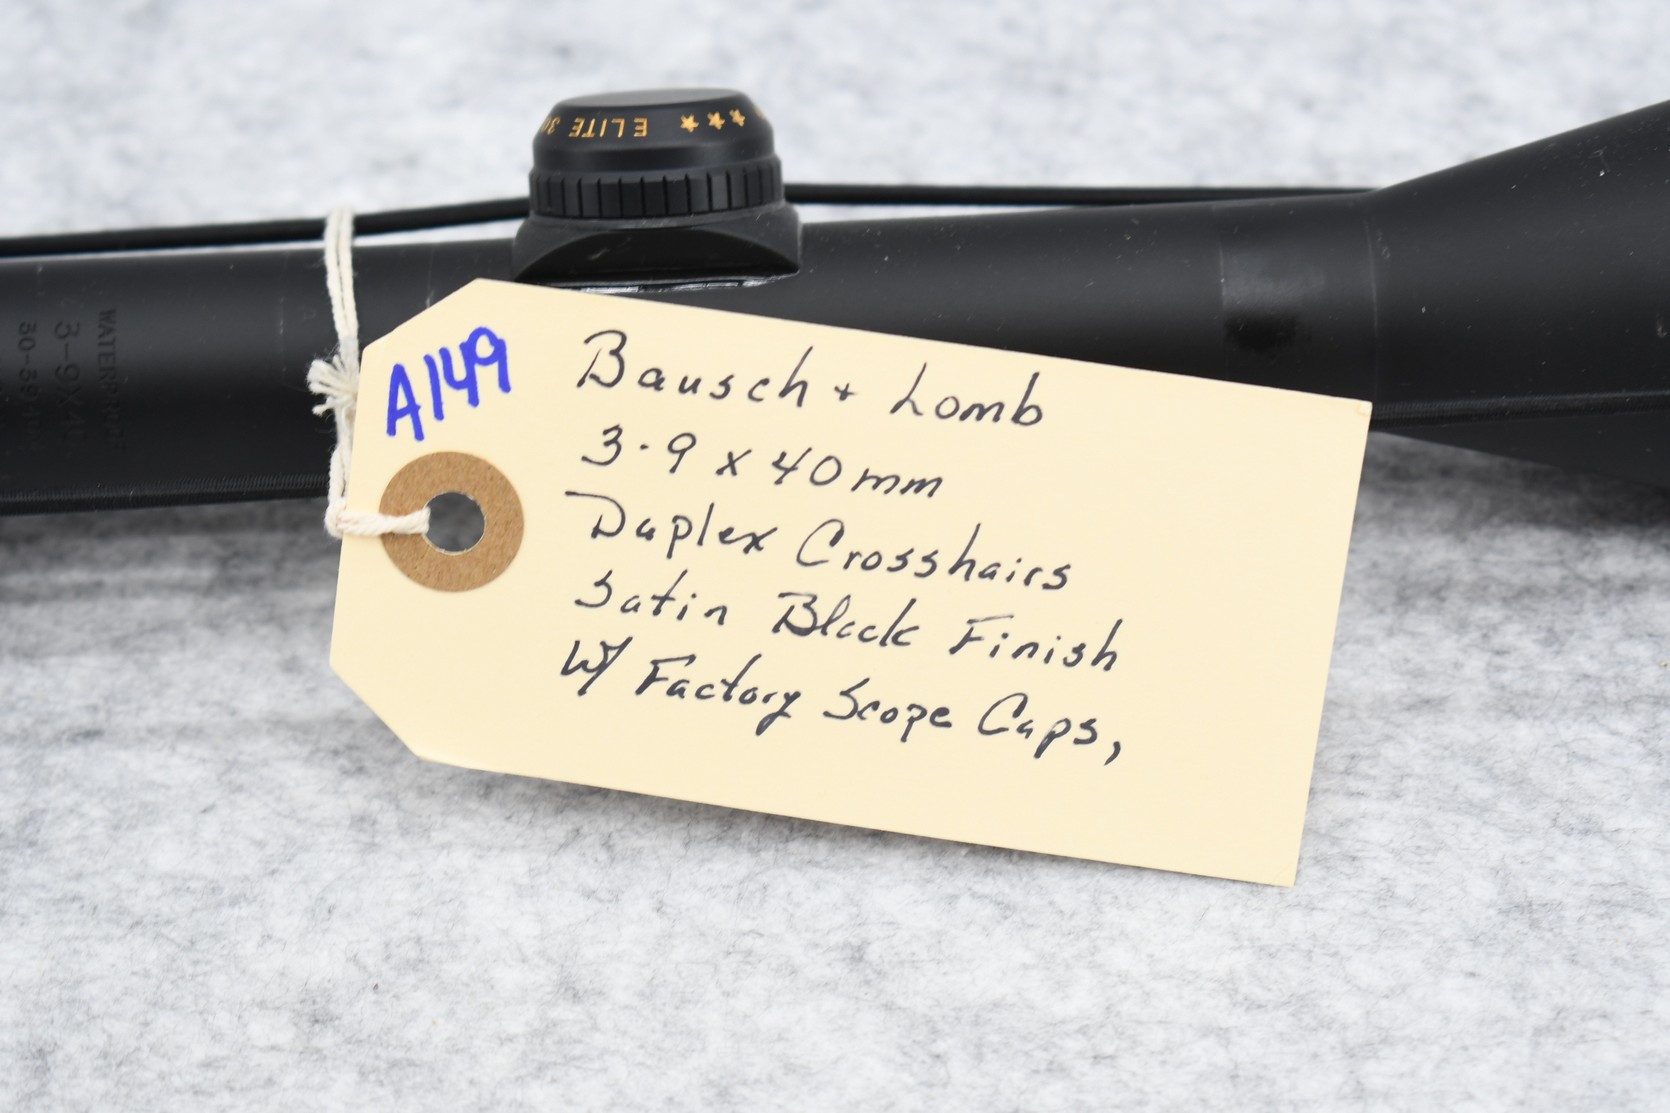 ★★★ ELITE 30
WATERPROOF
3-9X40
30-39
A149
Bausch + Lomb
3-9 x 40mm
Duplex Crosshairs
Satin Black Finish
W/ Factory Scope Caps,